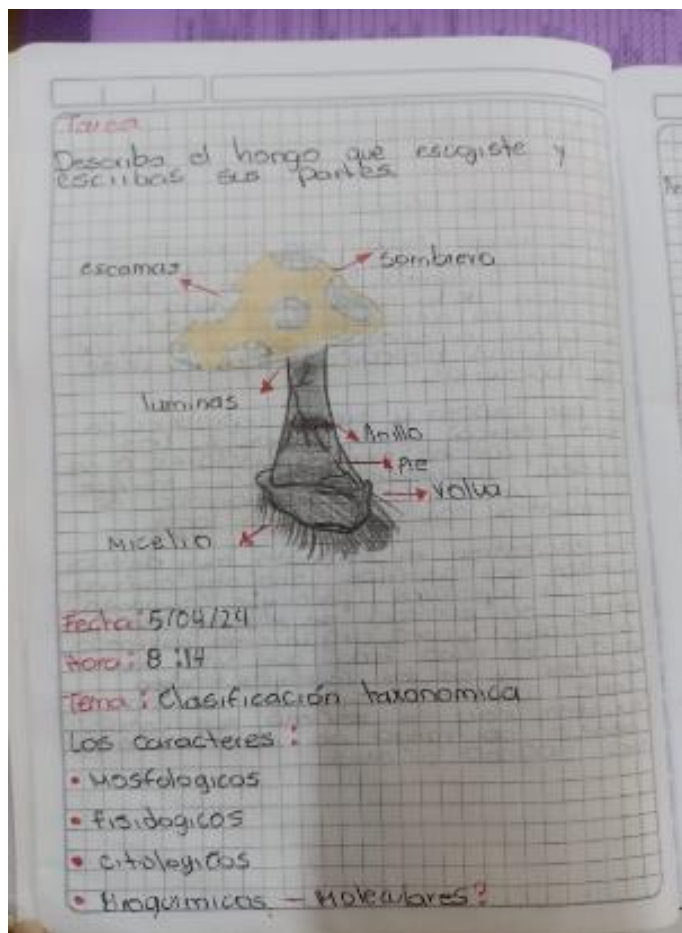 Tarea
Describa el hongo que escugiste y
escribas sus partes
escamas
sombrero
luminas
Anillo
Pie
Volva
Micelio
Fecha: 5/04/24
Hora: 8:14
Tema: Clasificación taxonomica
Los caracteres:
• Mosfologicos
• fisidogicos
• citologicos
• Bioquimicos - Moleculares?